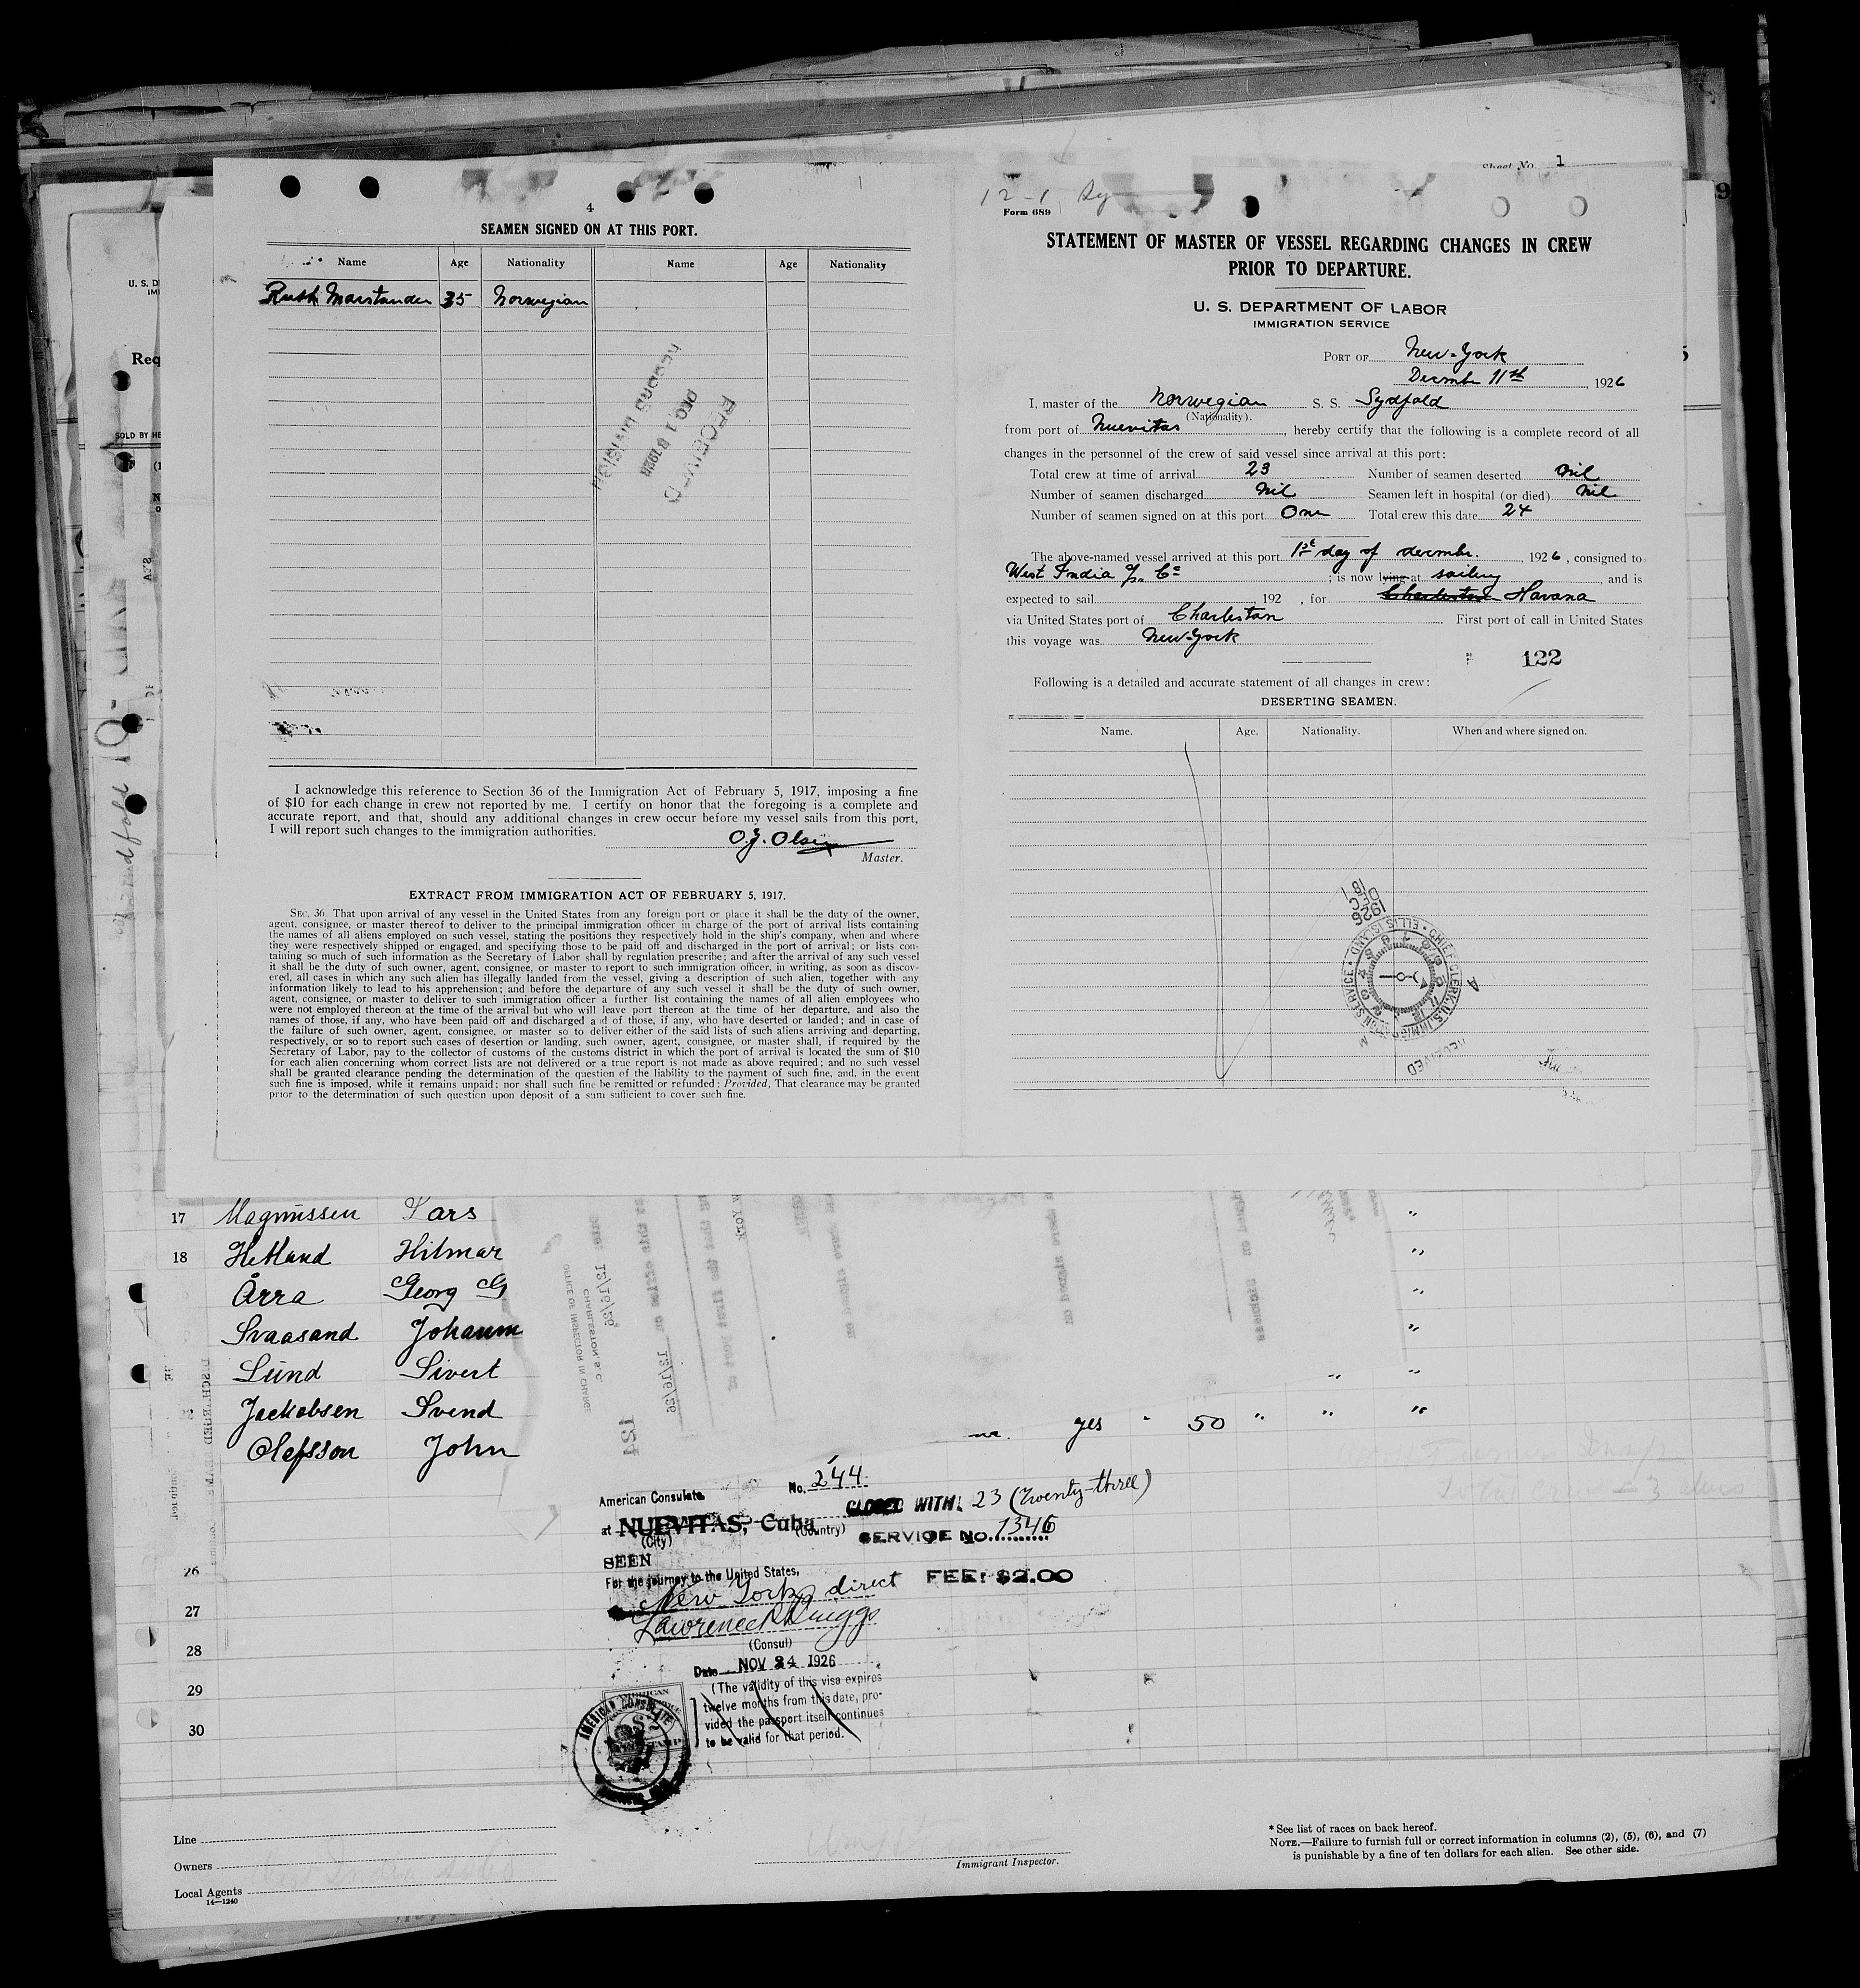 Sheet No. 1
4
SEAMEN SIGNED ON AT THIS PORT.
Name Age Nationality Name Age Nationality
Ruth Marstander 35 Norwegian
RECEIVED
DEC 18 1926
RECORD DIVISION
I acknowledge this reference to Section 36 of the Immigration Act of February 5, 1917, imposing a fine
of $10 for each change in crew not reported by me. I certify on honor that the foregoing is a complete and
accurate report, and that, should any additional changes in crew occur before my vessel sails from this port,
I will report such changes to the immigration authorities.
O.J. Olsen
Master.
EXTRACT FROM IMMIGRATION ACT OF FEBRUARY 5, 1917.
SEC. 36. That upon arrival of any vessel in the United States from any foreign port or place it shall be the duty of the owner,
agent, consignee, or master thereof to deliver to the principal immigration officer in charge of the port of arrival lists containing
the names of all aliens employed on such vessel, stating the positions they respectively hold in the ship's company, when and where
they were respectively shipped or engaged, and specifying those to be paid off and discharged in the port of arrival; or lists con-
taining so much of such information as the Secretary of Labor shall by regulation prescribe; and after the arrival of any such vessel
it shall be the duty of such owner, agent, consignee, or master to report to such immigration officer, in writing, as soon as discov-
ered, all cases in which any such alien has illegally landed from the vessel, giving a description of such alien, together with any
information likely to lead to his apprehension; and before the departure of any such vessel it shall be the duty of such owner,
agent, consignee, or master to deliver to such immigration officer a further list containing the names of all alien employees who
were not employed thereon at the time of the arrival but who will leave port thereon at the time of her departure, and also the
names of those, if any, who have been paid off and discharged and of those, if any, who have deserted or landed; and in case of
the failure of such owner, agent, consignee, or master so to deliver either of the said lists of such aliens arriving and departing,
respectively, or so to report such cases of desertion or landing, such owner, agent, consignee, or master shall, if required by the
Secretary of Labor, pay to the collector of customs of the customs district in which the port of arrival is located the sum of $10
for each alien concerning whom correct lists are not delivered or a true report is not made as above required; and no such vessel
shall be granted clearance pending the determination of the question of the liability to the payment of such fine, and, in the event
such fine is imposed, while it remains unpaid; nor shall such fine be remitted or refunded: Provided, That clearance may be granted
prior to the determination of such question upon deposit of a sum sufficient to cover such fine.
12-1 Sy
Form 689
STATEMENT OF MASTER OF VESSEL REGARDING CHANGES IN CREW
PRIOR TO DEPARTURE.
U. S. DEPARTMENT OF LABOR
IMMIGRATION SERVICE
PORT OF New-York
Decmbr 11th, 1926
I, master of the Norwegian S. S. Sydfold
(Nationality).
from port of Nuevitas, hereby certify that the following is a complete record of all
changes in the personnel of the crew of said vessel since arrival at this port:
Total crew at time of arrival 23 Number of seamen deserted nil
Number of seamen discharged nil Seamen left in hospital (or died) nil
Number of seamen signed on at this port One Total crew this date 24
The above-named vessel arrived at this port 1st day of decmbr. 1926, consigned to
West India Co; is now lying at sailing, and is
expected to sail 192 , for Charleston Havana
via United States port of Charleston First port of call in United States
this voyage was New-York
122
Following is a detailed and accurate statement of all changes in crew:
DESERTING SEAMEN.
Name. Age. Nationality. When and where signed on.
1926 DEC 18
CHIEF CLERK U.S. IMMIGRATION SERVICE • ELLIS ISLAND •
RECEIVED
U. S. D
Req
SOLD BY HE
17 Magnussen Lars "
18 Hetland Hilmar "
Årra Georg G "
Svaasand Johann "
Lund Sivert " "
Jackobsen Svend yes " 50 " " "
Olafsson John
CHARLESTON, S. C.
OFFICE OF INSPECTOR IN CHARGE
12/16/26
124
26
27
28
29
30
No. 244
American Consulate
at NUEVITAS, Cuba
(City) (Country)
CLOSED WITH: 23 (Twenty-three)
SERVICE NO. 1346
SEEN
For the journey to the United States,
New York direct
FEE: $2.00
Lawrence Briggs
(Consul)
Date NOV 24 1926
(The validity of this visa expires
twelve months from this date, pro-
vided the passport itself continues
to be valid for that period.
AMERICAN CONSULATE
Line
Owners
Local Agents
14—1240
Immigrant Inspector.
* See list of races on back hereof.
NOTE.—Failure to furnish full or correct information in columns (2), (5), (6), and (7)
is punishable by a fine of ten dollars for each alien. See other side.